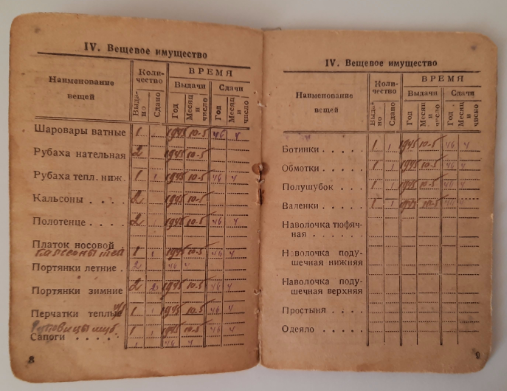 IV. Вещевое имущество
Наименование вещей
Количество
ВРЕМЯ
Выдано
Сдано
Выдачи
Сдачи
Год
Месяц и число
Год
Месяц и число
Шаровары ватные 1 1945 10-5 46 4
Рубаха нательная 2 1945 10-5
Рубаха тепл. ниж. 1 1 1945 10-5 46 4
Кальсоны 2 1945 10-5
Полотенце 2 1945 10-5 46 4
Платок носовой
1 1945 10-5 46 4
Портянки летние 2 46 4
Портянки зимние 2 2 1945 10-5 46 4
Перчатки теплые 1 1 1945 10-5 46 4
1 1945 10-5 46 4
Сапоги 46 4
8
IV. Вещевое имущество
Наименование вещей
Количество
ВРЕМЯ
Выдано
Сдано
Выдачи
Сдачи
Год
Месяц и число
Год
Месяц и число
Ботинки 1 1 1945 10-5 46 4
Обмотки 1 1 1945 10-5 46 4
Полушубок 1 1 1945 10-5 46 4
Валенки 1 1 1945 10-5 46
Наволочка тюфячная
Наволочка подушечная нижняя
Наволочка подушечная верхняя
Простыня
Одеяло
9